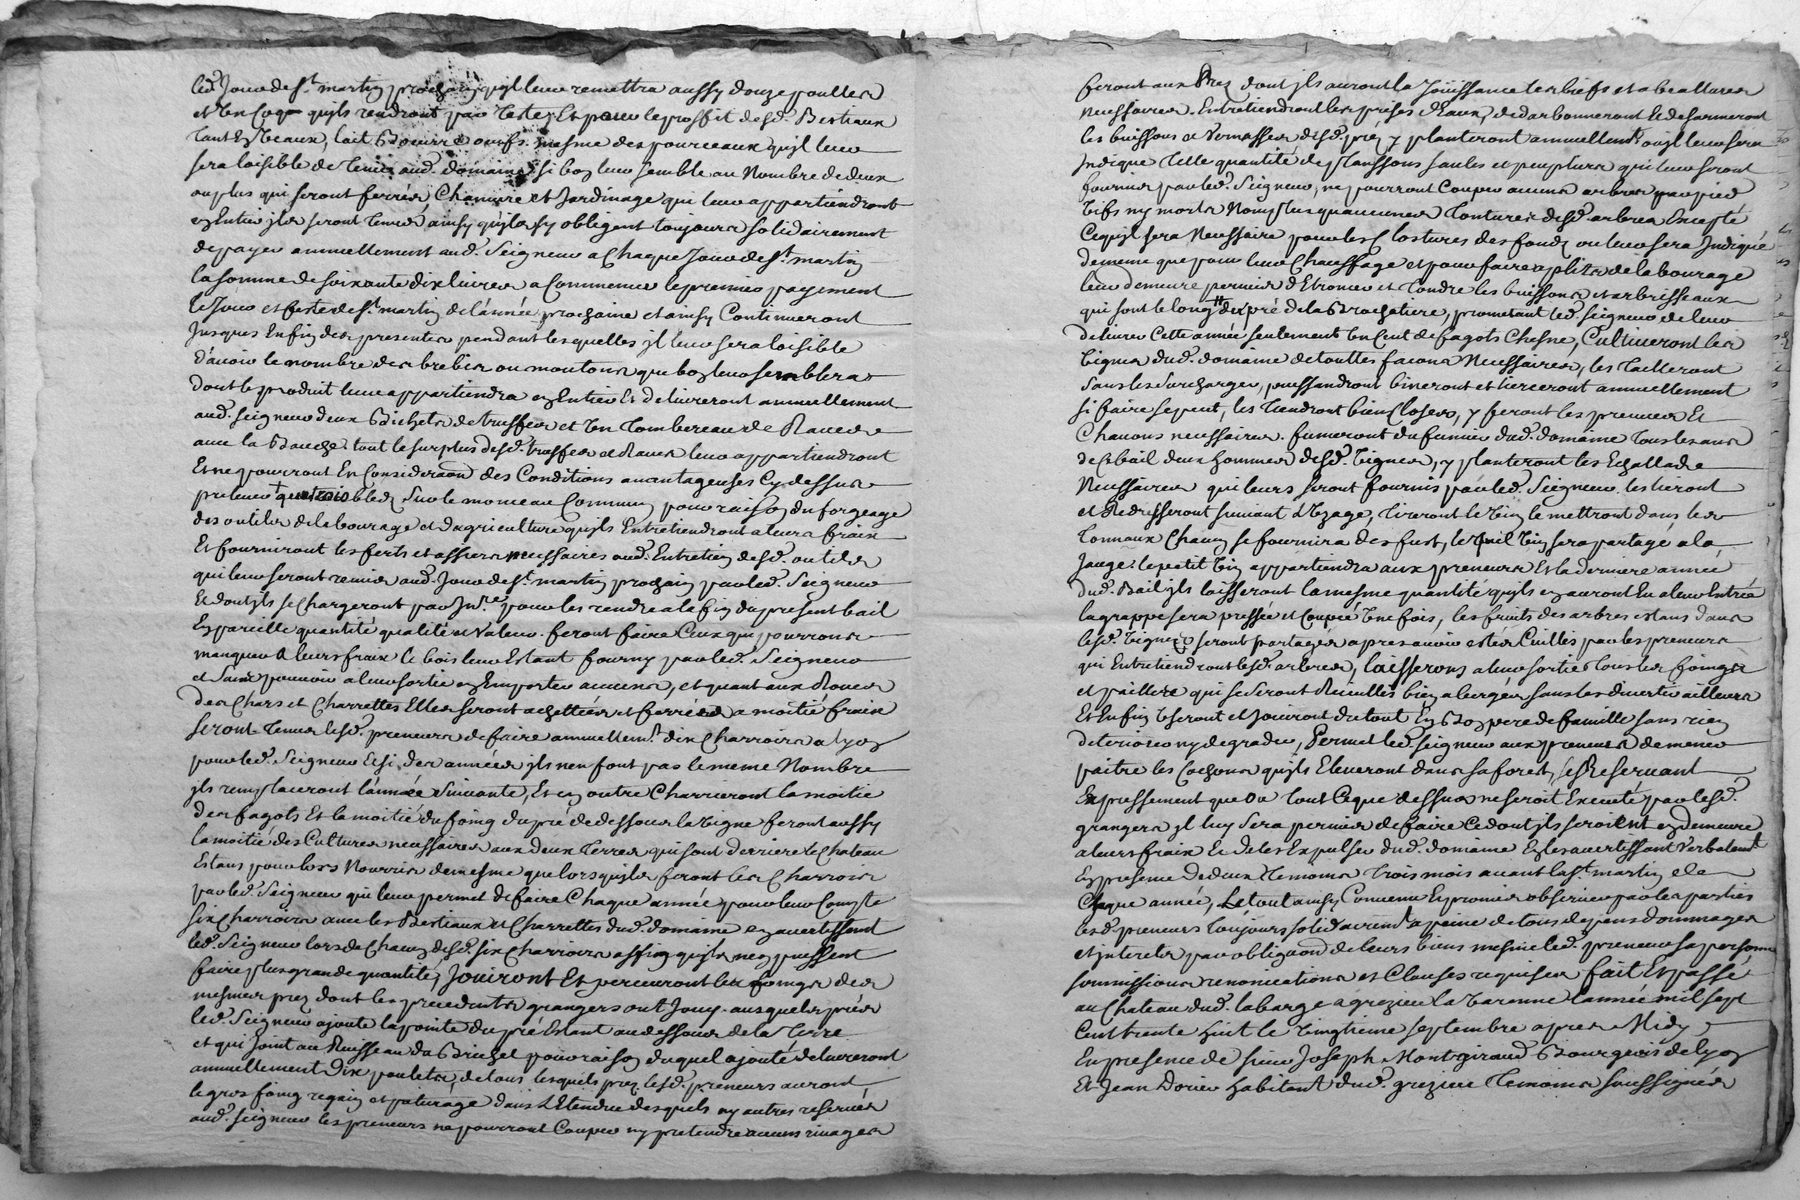 led. Jour de st. martin prochain qu'il leur remettra aussy douze poulles
et un coq qu'ils rendront par teste, Et pour le proffit desd. Bestiaux
tant En Veaux, lait Beurre oeufs mesme des pourceaux qu'il leur
sera loisible de tenir aud. domaine si bon leur semble au Nombre de deux
ou plus qui seront ferrés, Chanvre et Jardinage qui leur appartiendront
en Entier ils seront tenus ainsy qu'ils sy obligent toujours solidairement
de payer annuellement aud. Seigneur a Chaque Jour de st. martin
la somme de soixante dix livres a Commencer le premier payement
le Jour et feste de st. martin de l'année prochaine et ainsy Continueront
Jusques En fin des presentes pendant lesquelles il leur sera loisible
d'avoir le nombre des brebis ou moutons que bon leur semblera
dont le produit leur appartiendra en Entier Et delivreront annuellement
aud. seigneur deux Bichets de truffes et un tombereau de Raves
avec la tout le surplus desd. truffes et Raves leur appartiendront
Et ne pourront En Consideraon des Conditions avantageuses Cy dessus
prelever bled sur le monceau Commun pour raison du forgeage
des outils de labourage et d'agriculture qu'ils Entretiendront a leurs fraix
Et fourniront les ferts et assiers necessaires aud. Entretien desd. outils
qui leur seront remis aud. Jour de st. martin prochain par led. Seigneur
Et dont ils se Chargeront par Inre. pour les rendre a la fin du present bail
En pareille quantité qualité et Valeur. feront faire Ceux qui pourront
manquer a leurs fraix le bois leur Estant fourny par led. Seigneur
et sans pouvoir a leur sortie en Emporter aucuns, et quant aux Roues
des Chars et Charrettes Elles seront achettées et ferrées a moitié fraix
seront tenus lesd. preneurs de faire annuellemt. dix Charrois a lyon
pour led. Seigneur Et si des années ils n'en font pas le meme Nombre
ils remplaceront l'année suivante, Et en outre Charrieront la moitié
des fagots Et la moitié du foing du pré de dessous la vigne feront aussy
la moitié des Cultures necessaires aux deux terres qui sont derriere le Chateau
Estans pour lors Nourris de mesme que lorsqu'ils feront les Charrois
par led. Seigneur qui leur permet de faire Chaque année pour leur Compte
six Charrois avec les Bestiaux et Charrettes dud. domaine en avertissant
led. Seigneur lors de Chacun desd. six Charrois affin qu'ils n'en puissent
faire plus grande quantité, Jouiront Et perceuront les foings des
mesmes prez dont les precedents grangers ont Jouy. ausquels prés
led. Seigneur ajoute la pointe du pré Estant au dessous de la terre
et qui Joint au Ruisseau du pour raison duquel ajouté delivreront
annuellement Dix poulets, de tous lesquels prez lesd. preneurs auront
le gros foing regain et paturage dans l'Etendue desquels ny autres reservés
aud. seigneur les preneurs ne pourront Couper ny pretendre aucuns
feront aux Prez dont ils auront la Jouissance les biefs et abeallures
necessaires. Entretiendront les prises d'Eaux,
les buissons et desd. prez y planteront annuellemt. ou il leur sera
Indiqué telle quantité de planssons saules et peupliers qui leur seront
fournis par led. Seigneur, ne pourront Couper aucuns arbres par pied
vifs ny morts Non plus qu'aucunes tontures desd. arbres Excepté
Ce qu'il sera Necessaire pour les Clostures des fonds ou leur sera Indiqué
de meme que pour leur Chauffage et pour faire outils de labourage
leur demeure permis d'Etroncer et tondre les buissons et arbrisseaux
qui sont le long du pré de la Brochatiere, prometant led. seigneur de leur
delivrer Cette année seulement un Cent de fagots Chesne, Cultiveront les
vignes dud. domaine de touttes facons Necessaires, les tailleront
sans les surcharger, puissandront bineront et tierceront annuellement
si faire se peut, les tiendront bien Closes, y feront les preuves Et
Chavons necessaires. fumeront du fumier dud. domaine tous les ans
de Ce bail deux hommes desd. vignes, y planteront les Echallads
Necessaires qui leurs seront fournis par led. Seigneur. les lieront
et Redresseront suivant l'Uzage, tireront le vin le mettront dans les
tonneaux Chacun se fournira des fust, led. vin sera partagé a la
Jauge, le petit vin appartiendra aux preneurs Et la derniere année
dud. Bail ils laisseront la mesme quantité qu'ils en auront Eu a leur Entrée
la grappe sera pressée et coupée une fois, les fruits des arbres estans dans
lesd. vignes seront partagés apres avoir estés Cuillés par les preneurs
qui Entretiendront lesd. arbres, laisseront a leur sortie tous les foings
et pailles qui se seront Recuillis bien abergés sans les divertir ailleurs
Et En fin useront et Jouiront du tout En Bon pere de famille sans rien
deteriorer ny degrader, Permet led. seigneur aux preneurs de mener
paitre les Cochons qu'ils Eleveront dans sa forest, se Reservant
Expressement que ou tout Ce que dessus ne seroit Executé par lesd.
grangers il luy sera permis de faire Ce dont ils seroient en demeure
a leurs fraix Et de les Expulser dud. domaine En les avertissant verbalemt.
En presence de deux temoins trois mois avant la st. martin de
Chaque année, Le tout ainsy Convenu Et promis observer par les parties
lesd. preneurs toujours solidairemt. a peine de tous depens dommages
et interets par obligaon de leurs biens mesme led. preneur sa personne
sommissions renonciations et Clauses requises fait Et passé
au Chateau dud. labarge a grezieu la varenne l'année mil sept
Cent trente huit le vingtieme septembre apres Midy
En presence de sieur Joseph Montgiraud Bourgeois de lyon
Et Jean Dorier habitant dud. grezieu temoins soussignés